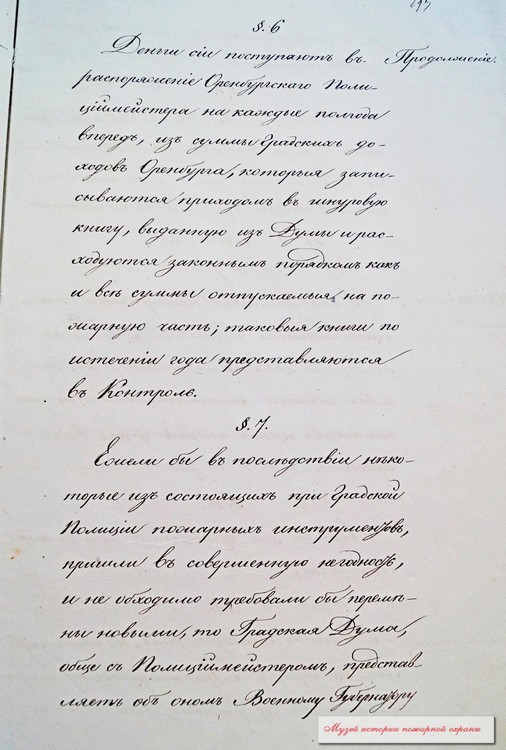 §. 6
Деньги сіи поступаютъ въ Продолженіе.
распоряженіе Оренбургскаго Поли-
ціймейстера на каждые полгода
впередъ, изъ суммы градскихъ до-
ходовъ Оренбурга, которыя запи-
сываются приходомъ въ шнуровую
книгу, выданную изъ Думы и рас-
ходуются законнымъ порядкомъ какъ
и всѣ суммы отпускаемыя на по-
жарную часть; таковыя книги по
истеченіи года представляются
въ Контроль.
§. 7.
Ежели бы въ послѣдствіи нѣко-
торые изъ состоящихъ при градской
Полиціи пожарныхъ инструментовъ,
пришли въ совершенную негодность,
и не обходимо требовали бы перемѣ-
ны новыми, то Градская Дума,
обще съ Полиціймейстеромъ, представ-
ляетъ объ ономъ Военному Губернатору
Музей истории пожарной охраны